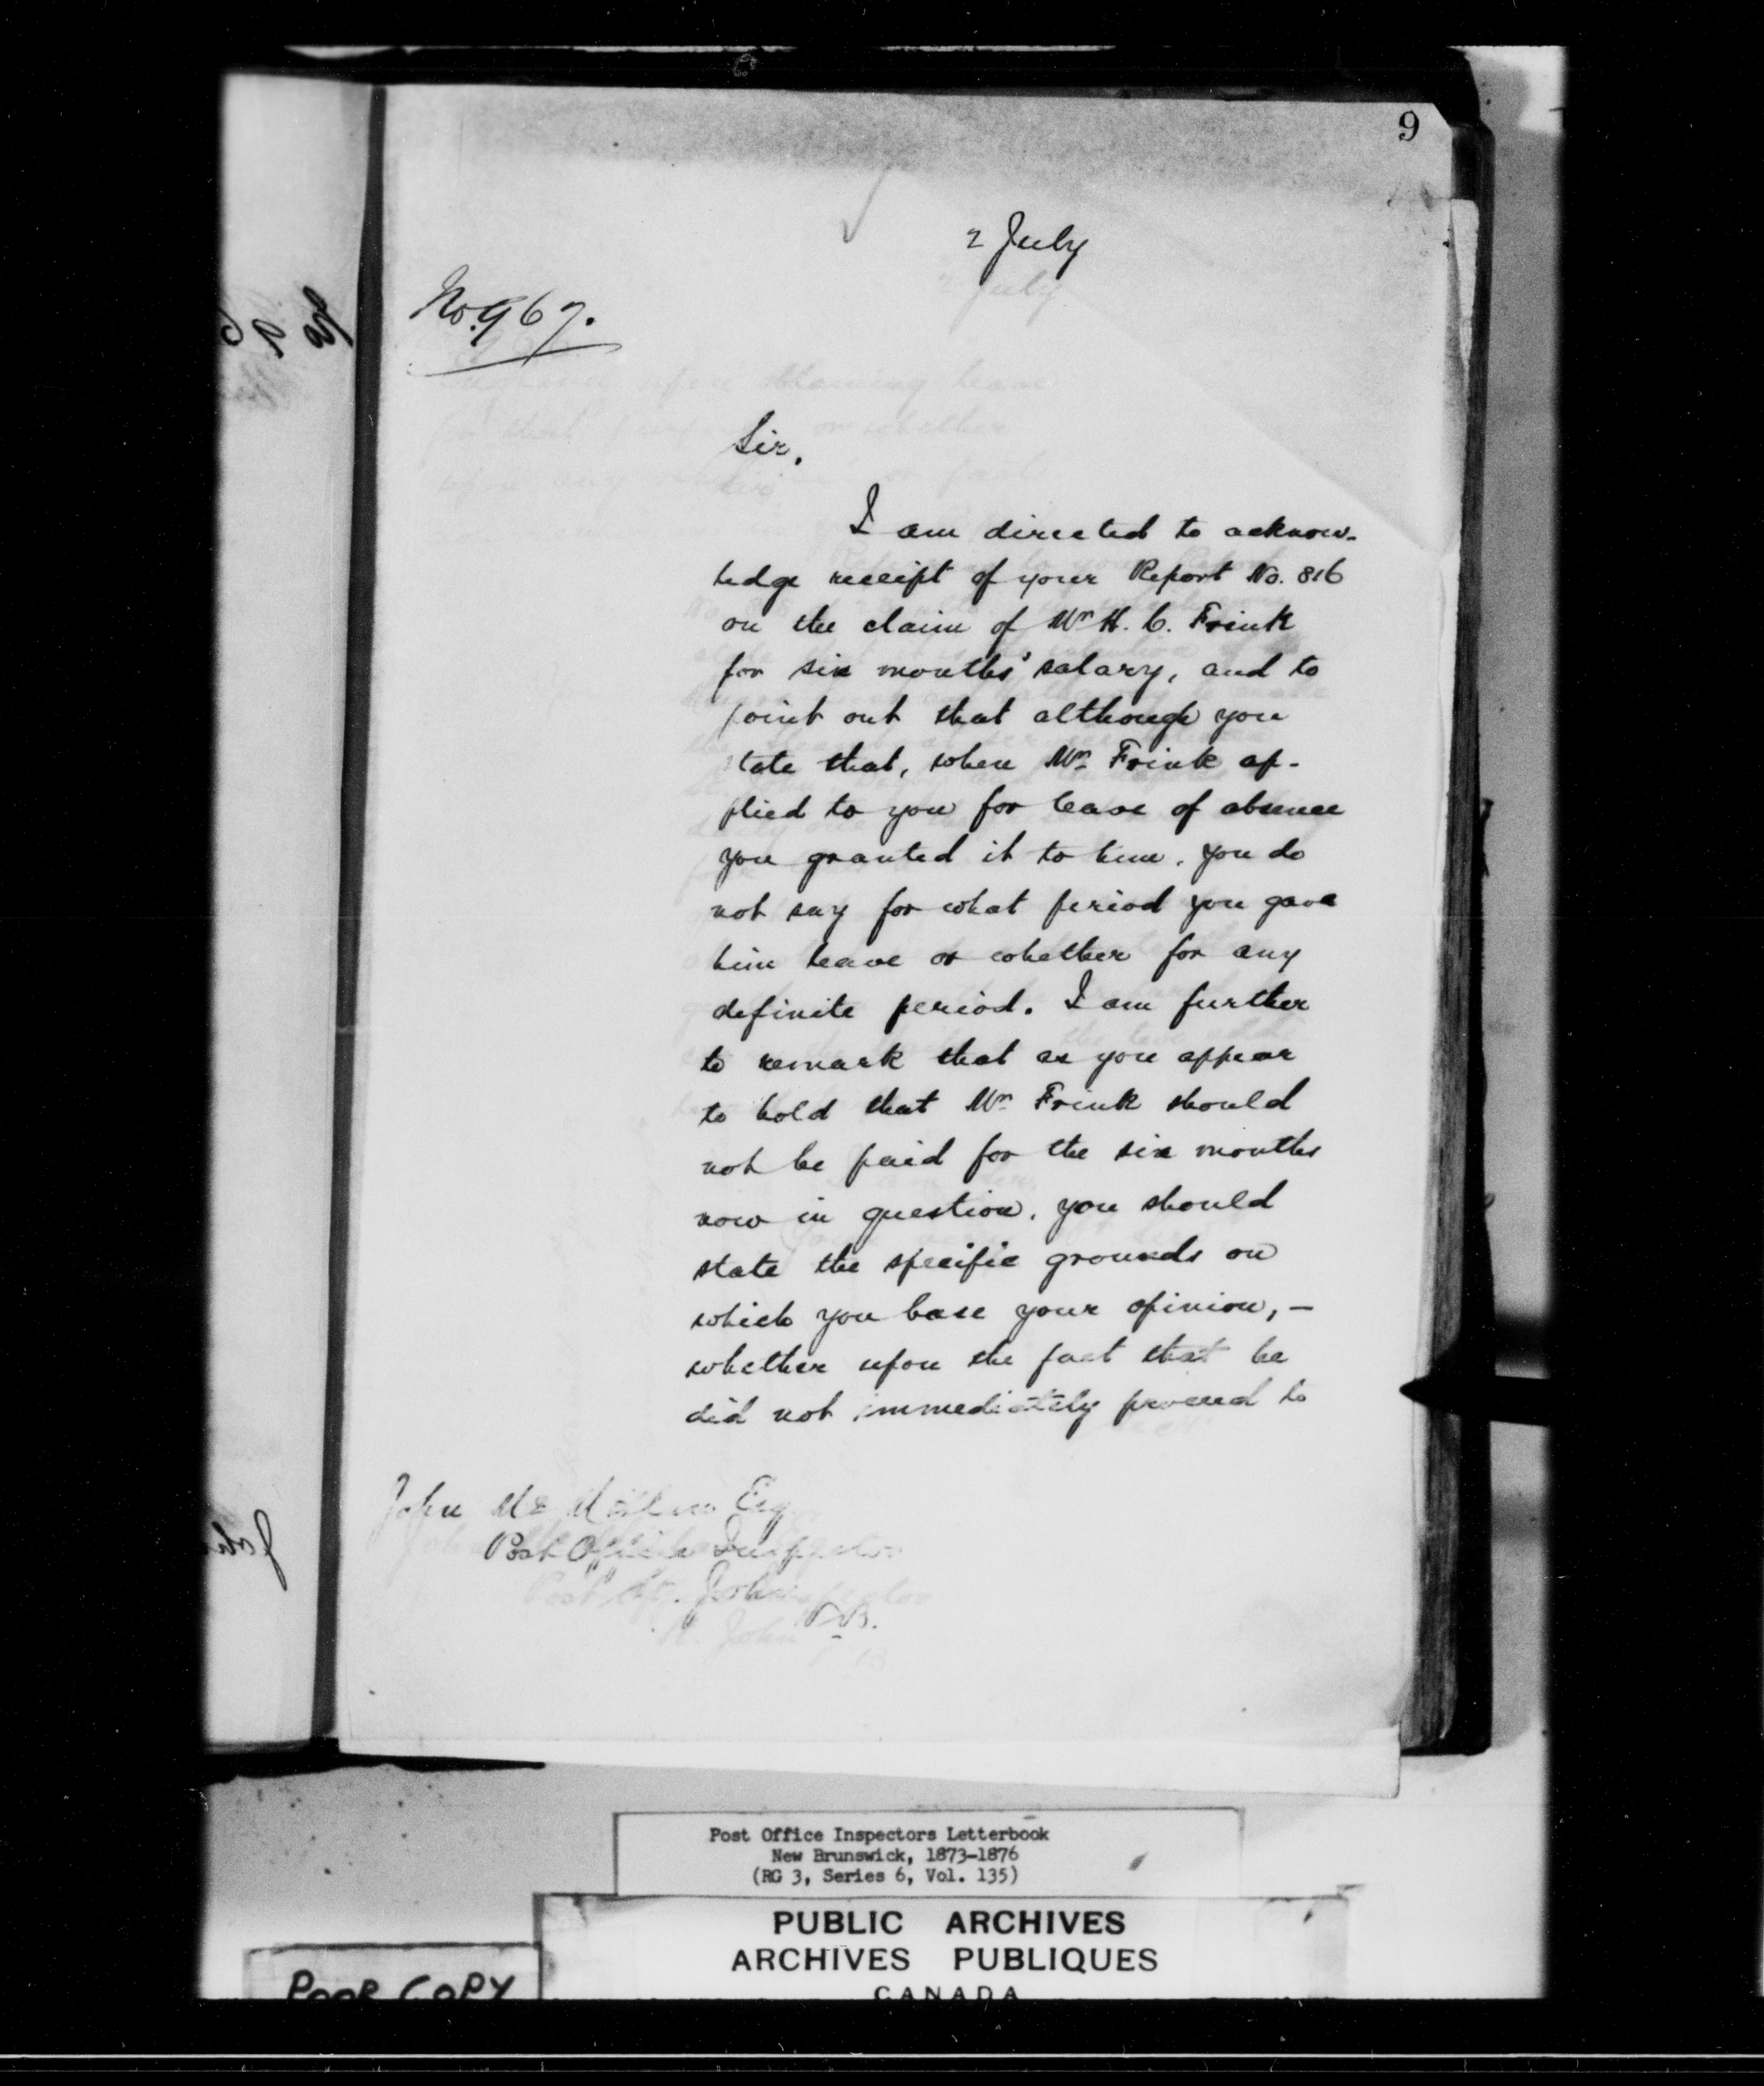 9
2 July
No. 967.
Sir,
I am directed to acknow-
ledge receipt of your Report No. 816
on the claim of Mr H. C. Frink
for six months' salary, and to
point out that although you
state that, when Mr Frink ap-
plied to you for leave of absence
you granted it to him, you do
not say for what period you gave
him leave or whether for any
definite period. I am further
to remark that as you appear
to hold that Mr Frink should
not be paid for the six months
now in question, you should
state the specific grounds on
which you base your opinion, —
whether upon the fact that he
did not immediately proceed to
John Mc Millan Esq
Post Office Inspector
St. John
N.B.
Post Office Inspectors Letterbook
New Brunswick, 1873-1876
(RG 3, Series 6, Vol. 135)
PUBLIC ARCHIVES
ARCHIVES PUBLIQUES
CANADA
POOR COPY